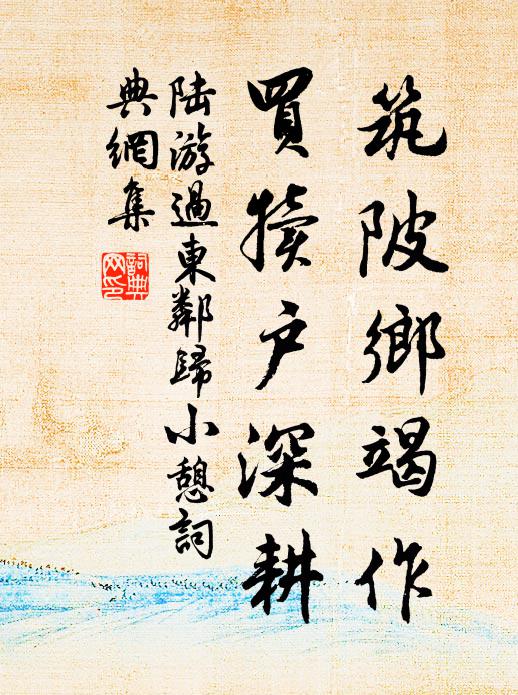 筑陂鄉竭作
買犢戶深耕
陸游過東鄰歸小憩詞
典網集
詞典网印